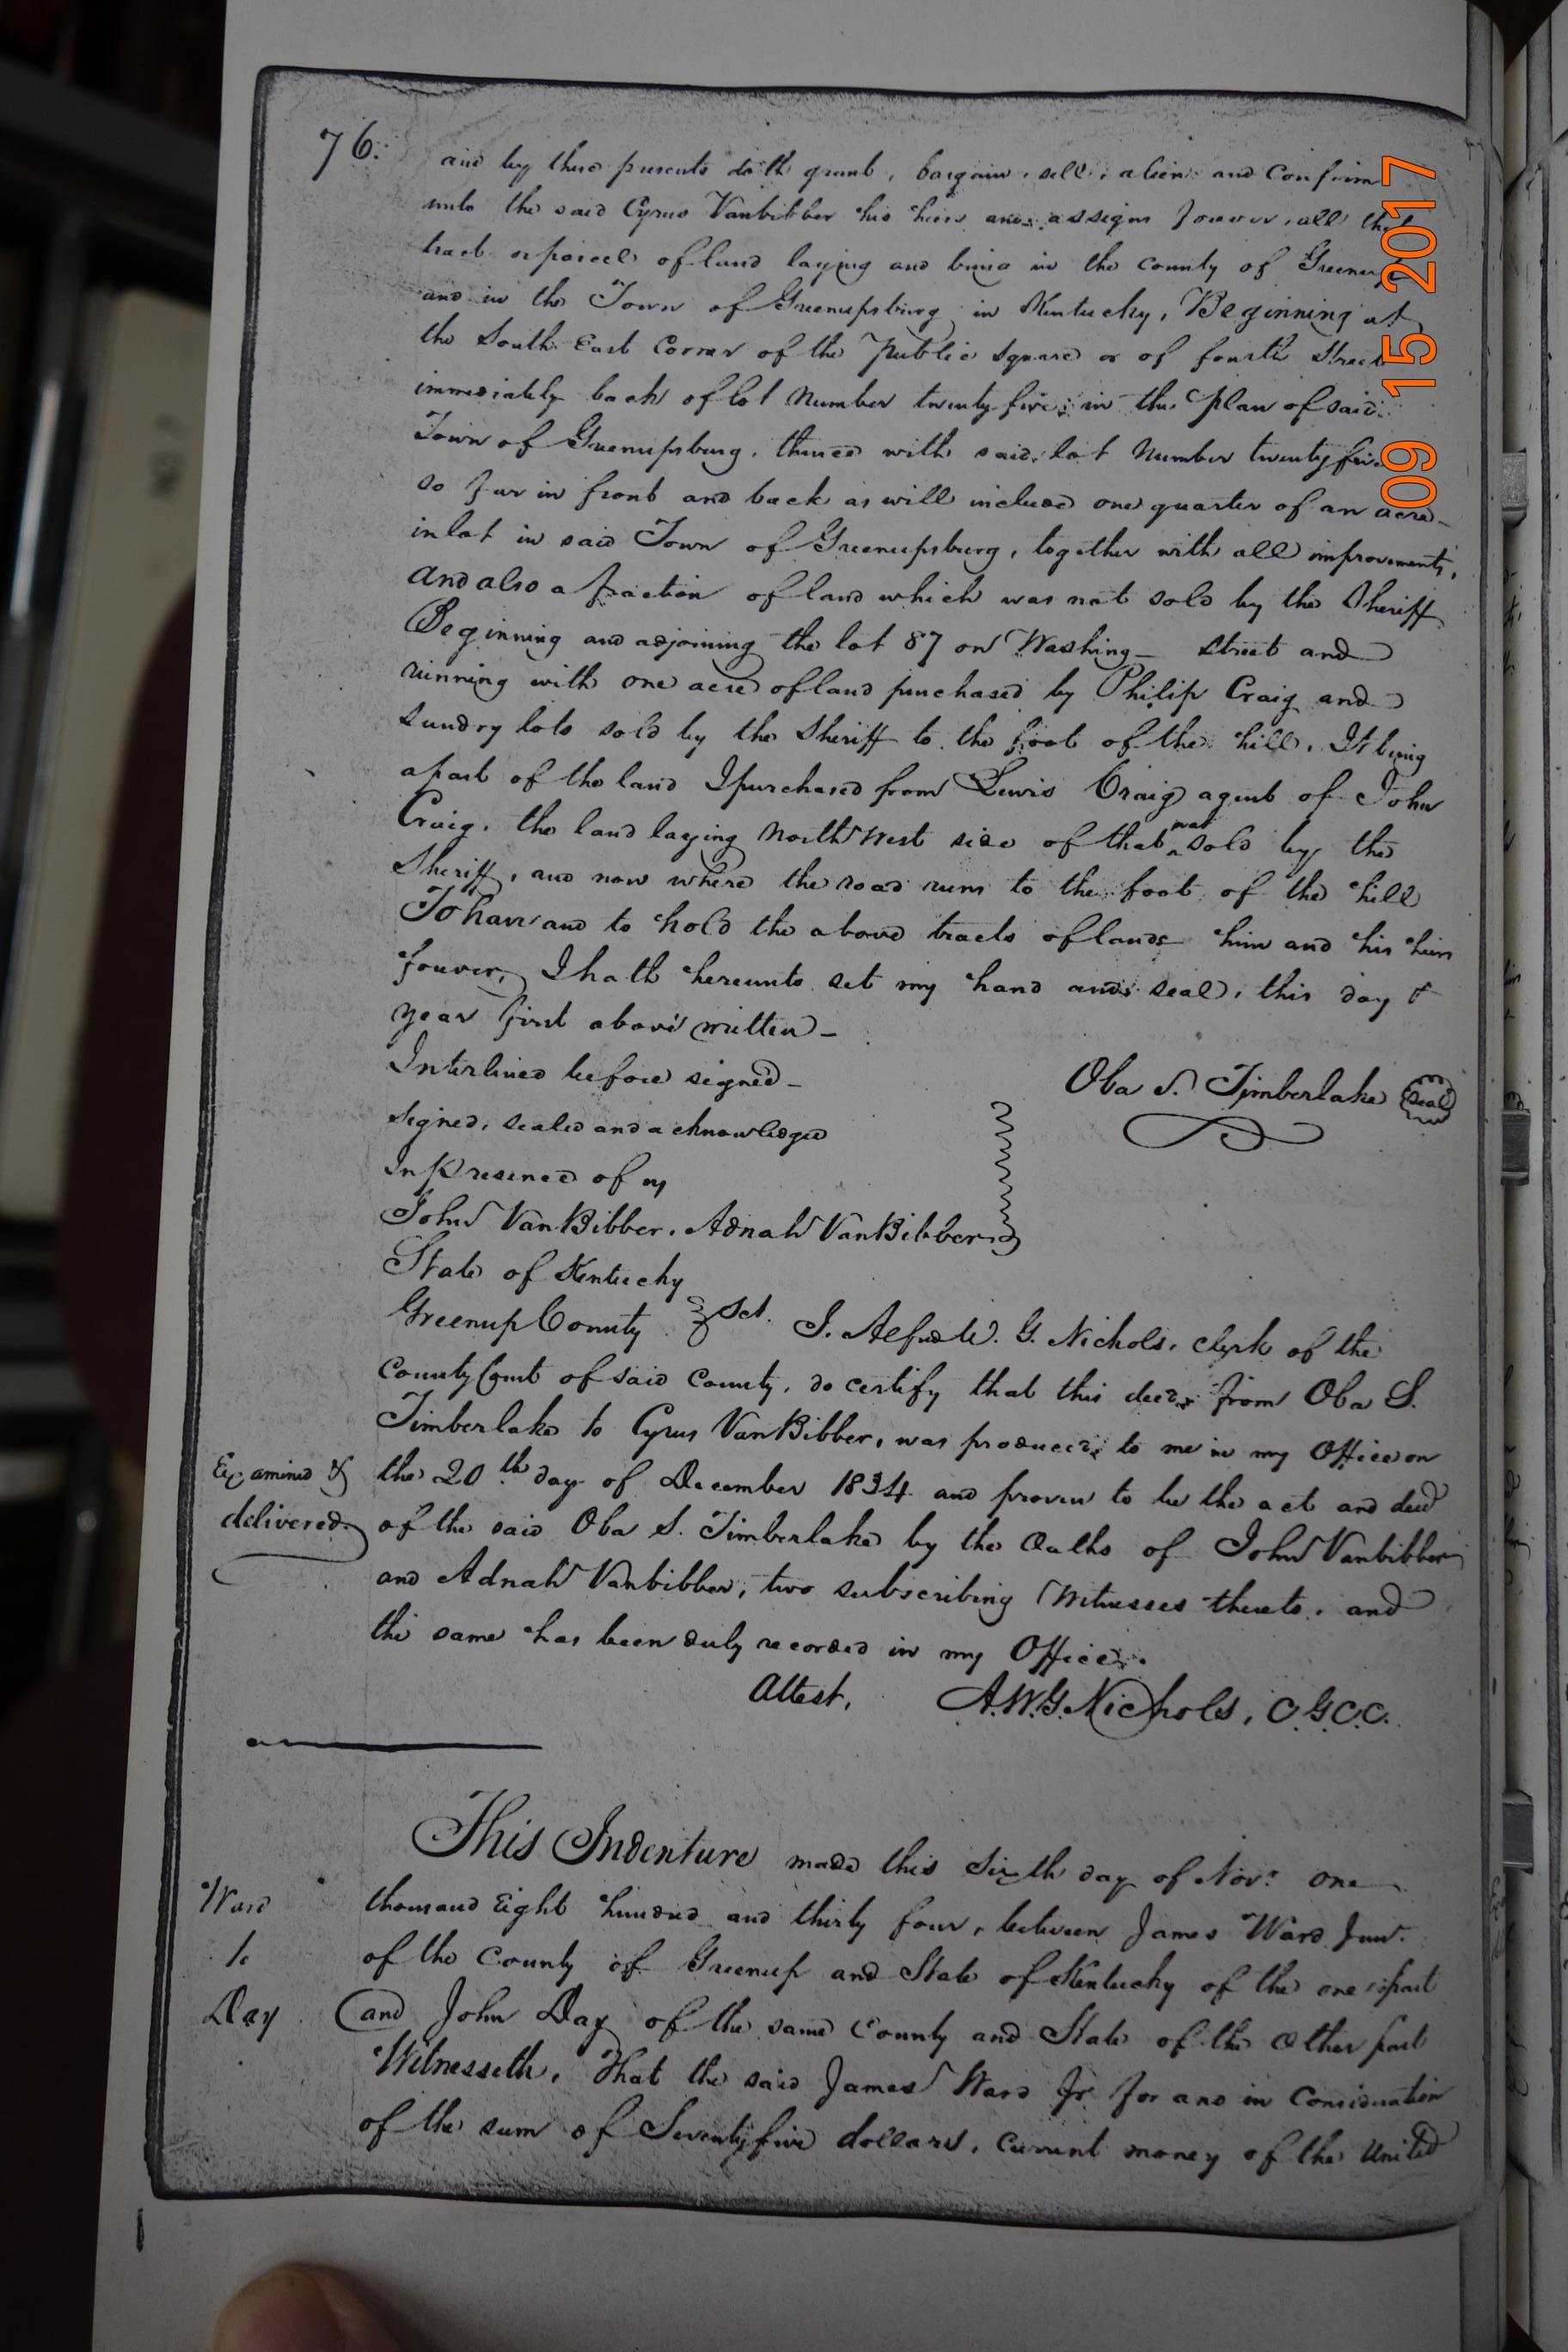 76.
and by these presents doth grant, bargain, sell, alien and Confirm
unto the said Cyrus Vanbibber his heirs and assigns forever, all that
tract or parcel of land laying and being in the county of Greenup
and in the Town of Greenupsburg in Kentucky, Beginning at
the South East Corner of the Public Square or of fourth Street
immediately back of lot Number twenty five in the Plan of said
Town of Greenupsburg, thence with said lot Number twenty five
so far in front and back as will include one quarter of an acre
inlot in said Town of Greenupsburg, together with all improvements,
and also a fraction of land which was not sold by the Sheriff
Beginning and adjoining the lot 87 on Washing— Street and
running with one acre of land purchased by Philip Craig and
sundry lots sold by the Sheriff to the foot of the hill. It being
a part of the land I purchased from Lewis Craig agent of John
Craig, the land laying North West side of that sold by the
Sheriff, and now where the road runs to the foot of the hill
To have and to hold the above tracts of lands him and his heirs
forever, I hath hereunto set my hand and seal, this day &
year first above written —
Interlined before signed —
Oba S. Timberlake Seal
Signed, sealed and acknowledged
In Presence of us
John VanBibber, Adnah VanBibber
State of Kentucky
Greenup County Sct. I, Alfred W. G. Nichols, clerk of the
County Court of said County, do certify that this deed from Oba S.
Timberlake to Cyrus VanBibber, was produced to me in my Office on
Examined &
the 20th day of December 1834 and proven to be the act and deed
delivered
of the said Oba S. Timberlake by the Oaths of John Vanbibber
and Adnah Vanbibber, two subscribing Witnesses thereto, and
the same has been duly recorded in my Office.
Attest, A.W.G. Nichols, C.G.C.C.
This Indenture made this Sixth day of Nov: One
Ward
thousand Eight hundred and thirty four, between James Ward Junr.
to
of the County of Greenup and State of Kentucky of the one part
Day
and John Day of the same County and State of the Other part
Witnesseth, That the said James Ward Jr for and in Consideration
of the sum of Seventy five dollars, current money of the United
09 15 2017